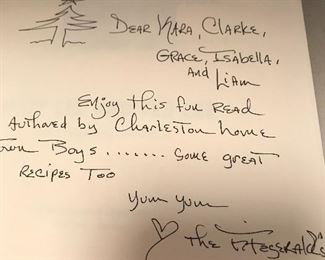 Dear Kara, Clarke,
Grace, Isabella,
and Liam
Enjoy this fun Read
Authored by Charleston home
Town Boys ....... Some great
Recipes Too
Yum Yum
The Fitzgerald's